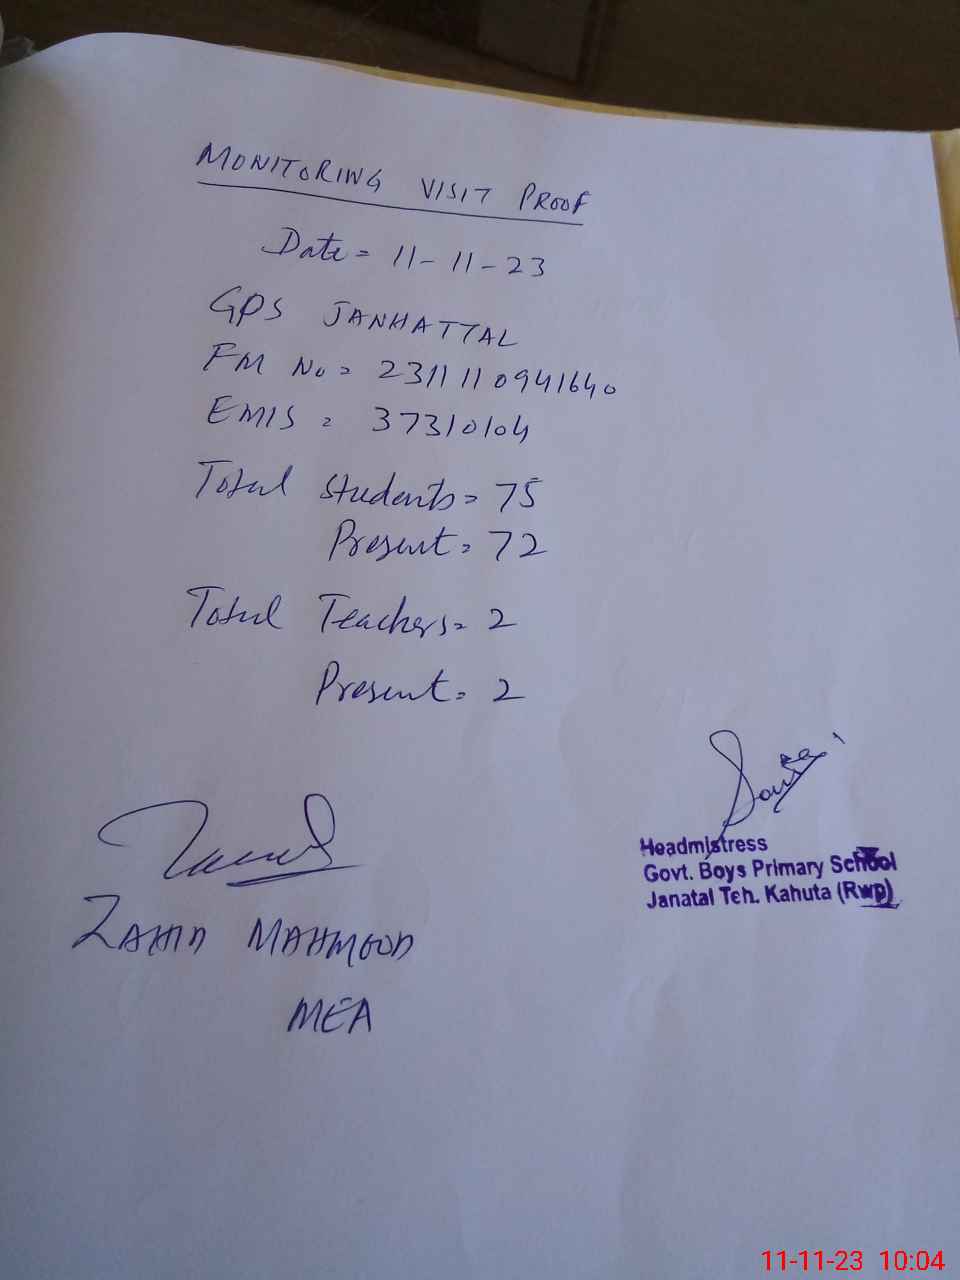 MONITORING VISIT PROOF
Date = 11-11-23
GPS JANHATTAL
FM No = 2311110941640
EMIS = 37310104
Total Students = 75
Present = 72
Total Teachers = 2
Present = 2
Headmistress
Govt. Boys Primary School
Janatal Teh. Kahuta (Rwp)
ZAHID MAHMOOD
MEA
11-11-23 10:04